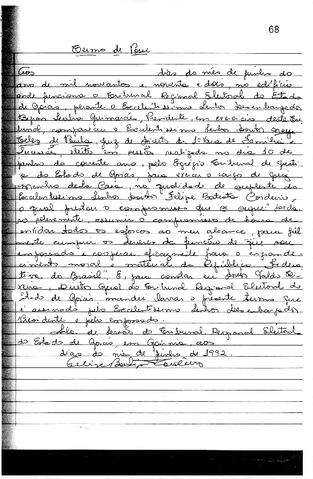 68
Termo de Posse
Aos dias do mês de junho do
ano de mil novecentos e noventa e dois, no edifício
onde funciona o Tribunal Regional Eleitoral do Estado
de Goiás, perante o Excelentíssimo Senhor Desembargador
Byron Seabra Guimarães, Presidente em exercício deste Tri-
bunal, compareceu o Excelentíssimo Senhor Doutor
Teles de Paula, Juiz de Direito da Vara de Família e
Sucessões, eleito em sessão realizada no dia 10 de
junho do corrente ano, pelo Egrégio Tribunal de Justi-
ça do Estado de Goiás, para exercer o cargo de Juiz
desta Casa, na qualidade de suplente do
Excelentíssimo Senhor Doutor Felipe Batista Cordeiro,
o qual prestou o compromisso que se segue:
assumo o compromisso de honra de
todos os esforços ao meu alcance, para fiel-
mente cumprir os deveres da função de que sou
empossado e cooperar eficazmente para o engrande-
cimento moral e material da República Federa-
tiva do Brasil". E, para constar eu,
Diretor Geral do Tribunal Regional Eleitoral do
Estado de Goiás, mandei lavrar o presente termo que
é assinado pelo Excelentíssimo Senhor Desembargador
Presidente e pelo empossado.
Sala de Sessões do Tribunal Regional Eleitoral
do Estado de Goiás, em Goiânia, aos
dias do mês de junho de 1992.
Felipe Batista Cordeiro